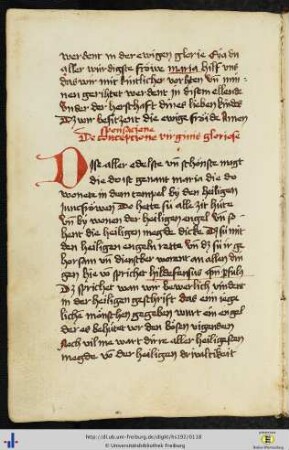 werdent in der ewigen glorie Eya du
aller wirdigste frowe maria hilf vns
das wir mit kintlicher vorhten vn min-
nen gerihtet werdent in disem ellende
vnder der herschaft dines lieben kindes
Dz wir besitzent die ewige fröide Amen
De conceptione virginis gloriose
Dise aller edelste vn schönste magt
die do ist genant maria die do
wonete in dem tempel by den heiligen
Juncfrowen Do hette sü alle zit hüte
vn by wonen der heiligen engel vn so-
hent die heiligen megde dicke Dz sü mit
den heiligen engeln rette vn dz sü ir ge-
horsam vn dienstber worent an allen din
gen hie vo sprichet hildefonsus
Dz sprichet wan wir bewerlich vindent
in der heiligen geschrift das eim iege
lichen mönschen gegeben wurt ein engel
der es behütet vor den bösen vigenden
Noch vil me wart dirre aller heiligesten
megde vo der heiligen drivaltikeit
http://dl.ub.uni-freiburg.de/diglit/hs192/0118
© Universitätsbibliothek Freiburg